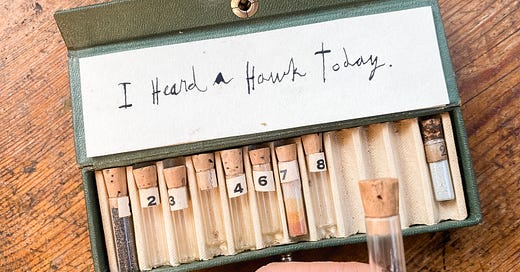 I Heard a Hawk Today.
2 3 4 6 7 8